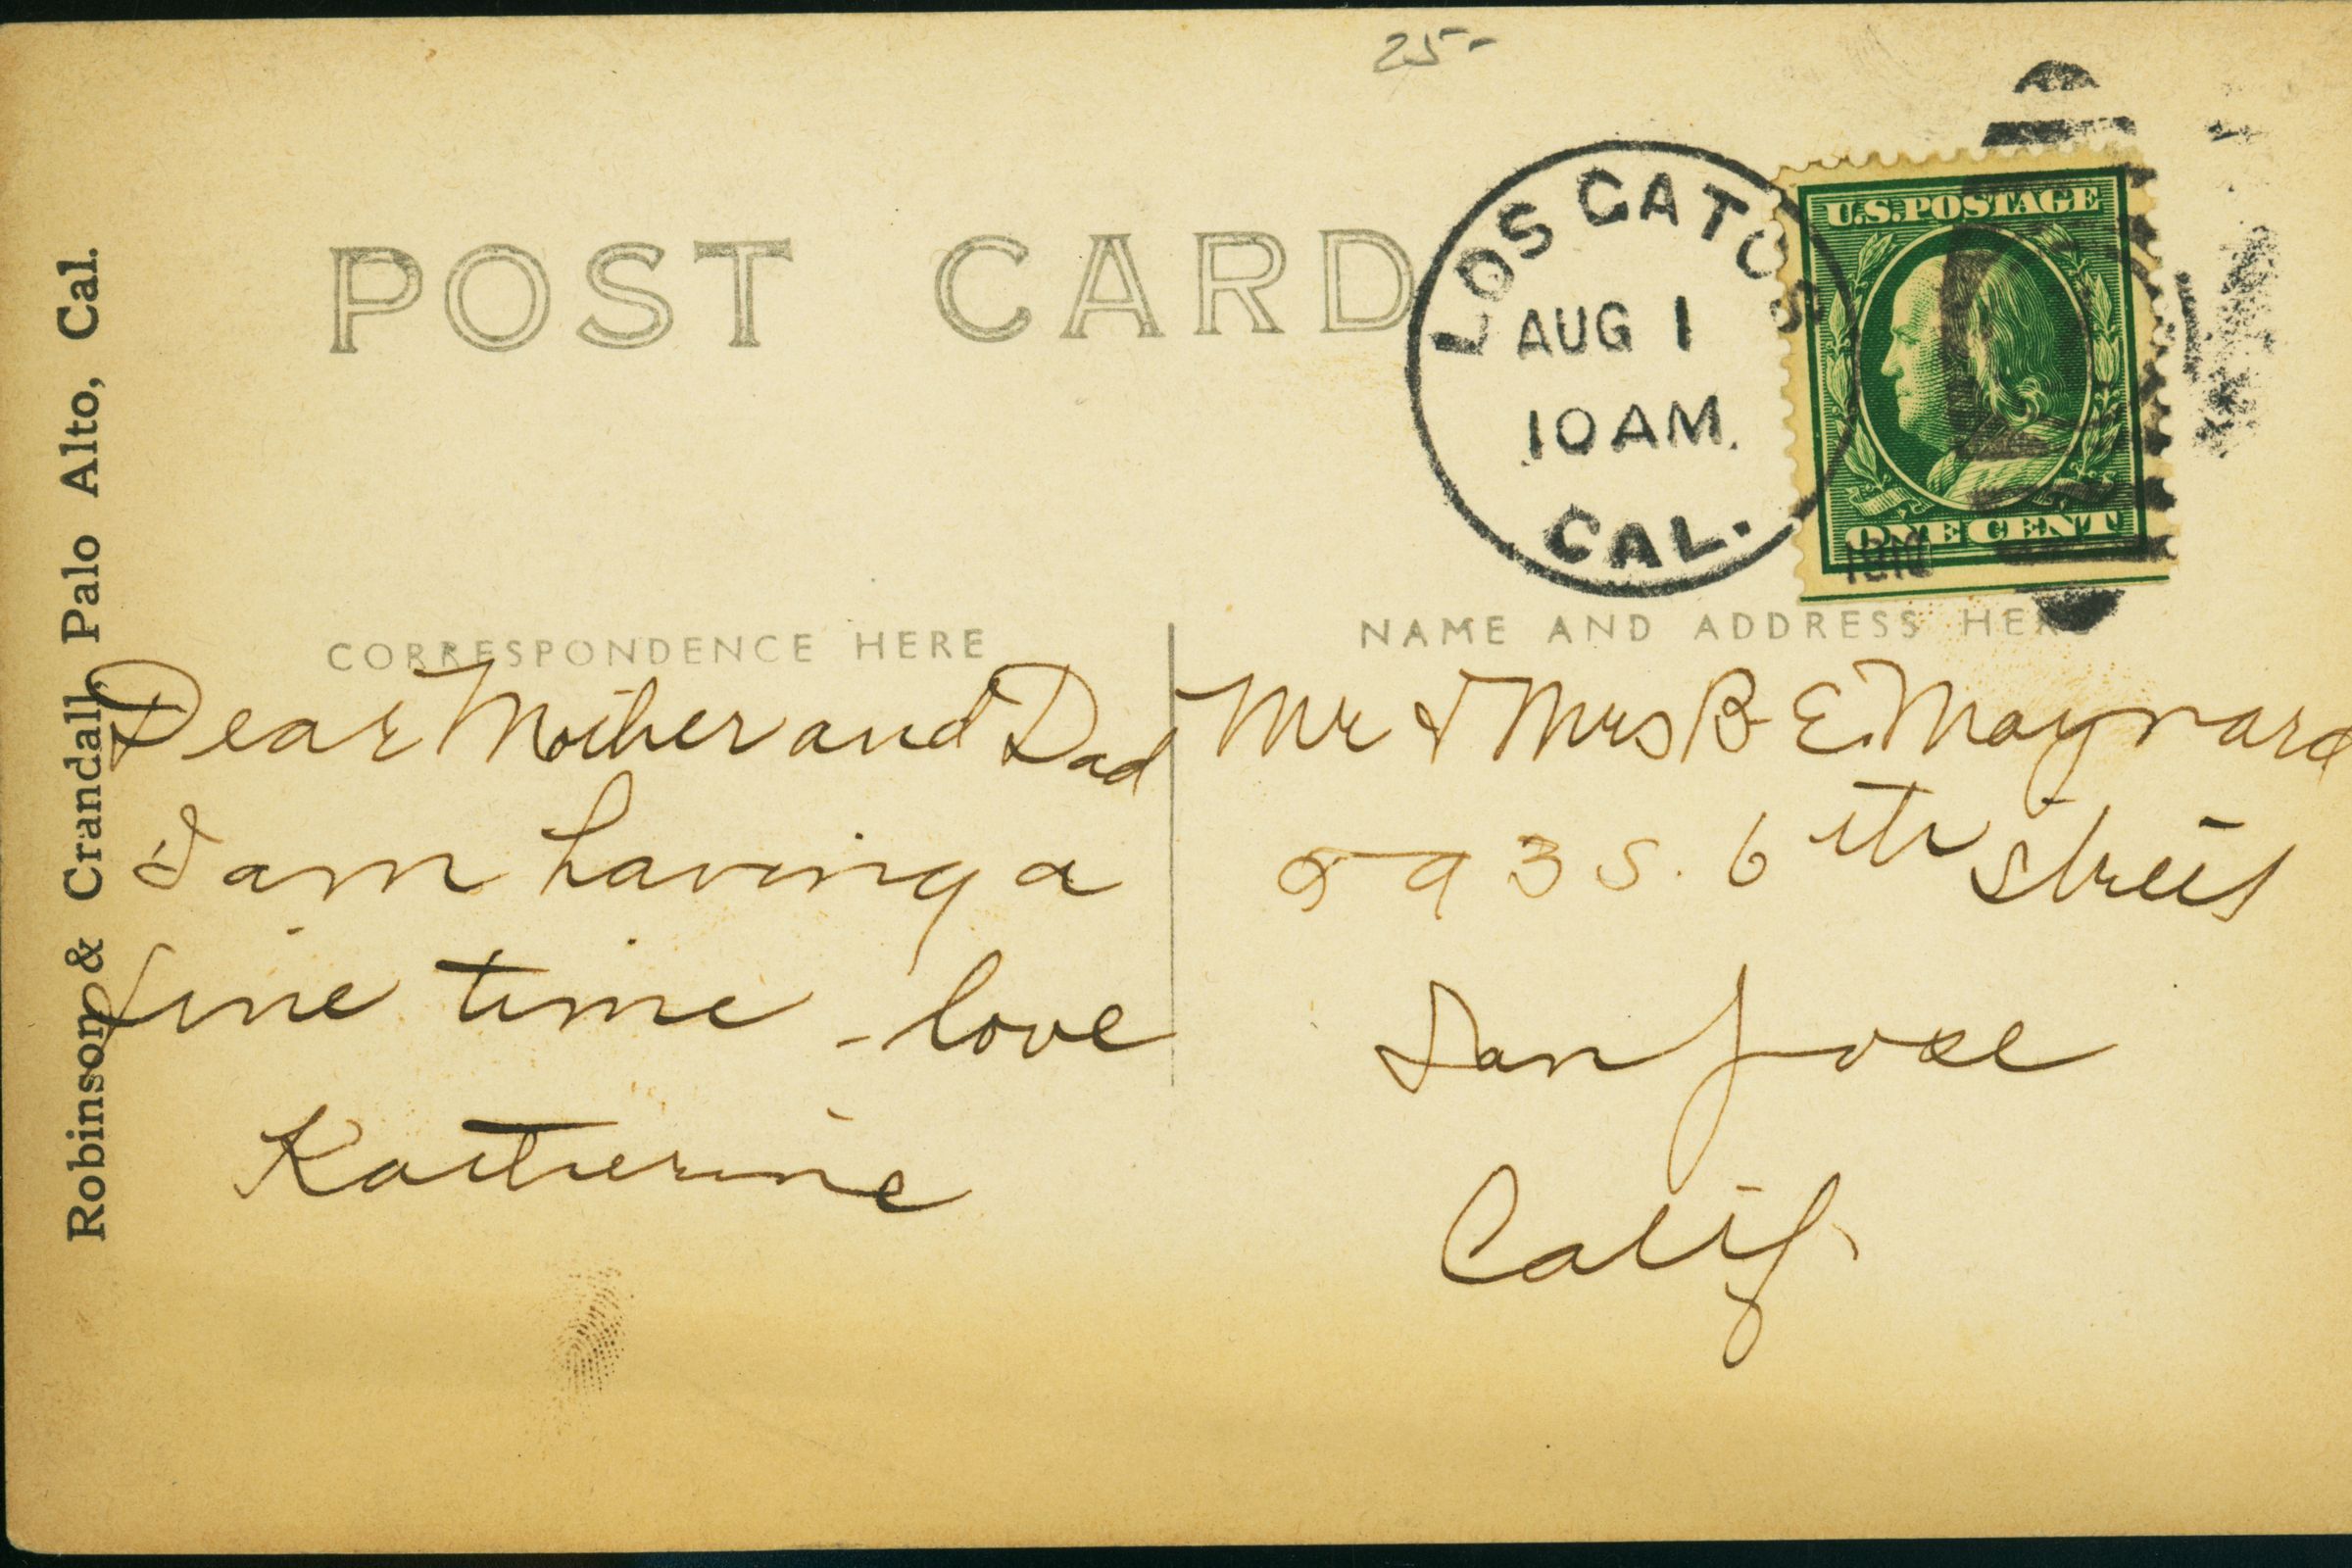 25-
POST CARD
LOS GATOS
AUG 1
10 AM.
CAL.
U.S. POSTAGE
ONE CENT
CORRESPONDENCE HERE
NAME AND ADDRESS HERE
Robinson & Crandall, Palo Alto, Cal.
Dear Mother and Dad
I am having a
fine time - love
Katherine
Mr & Mrs B E. Maynard
593 S. 6th Street
San Jose
Calif.